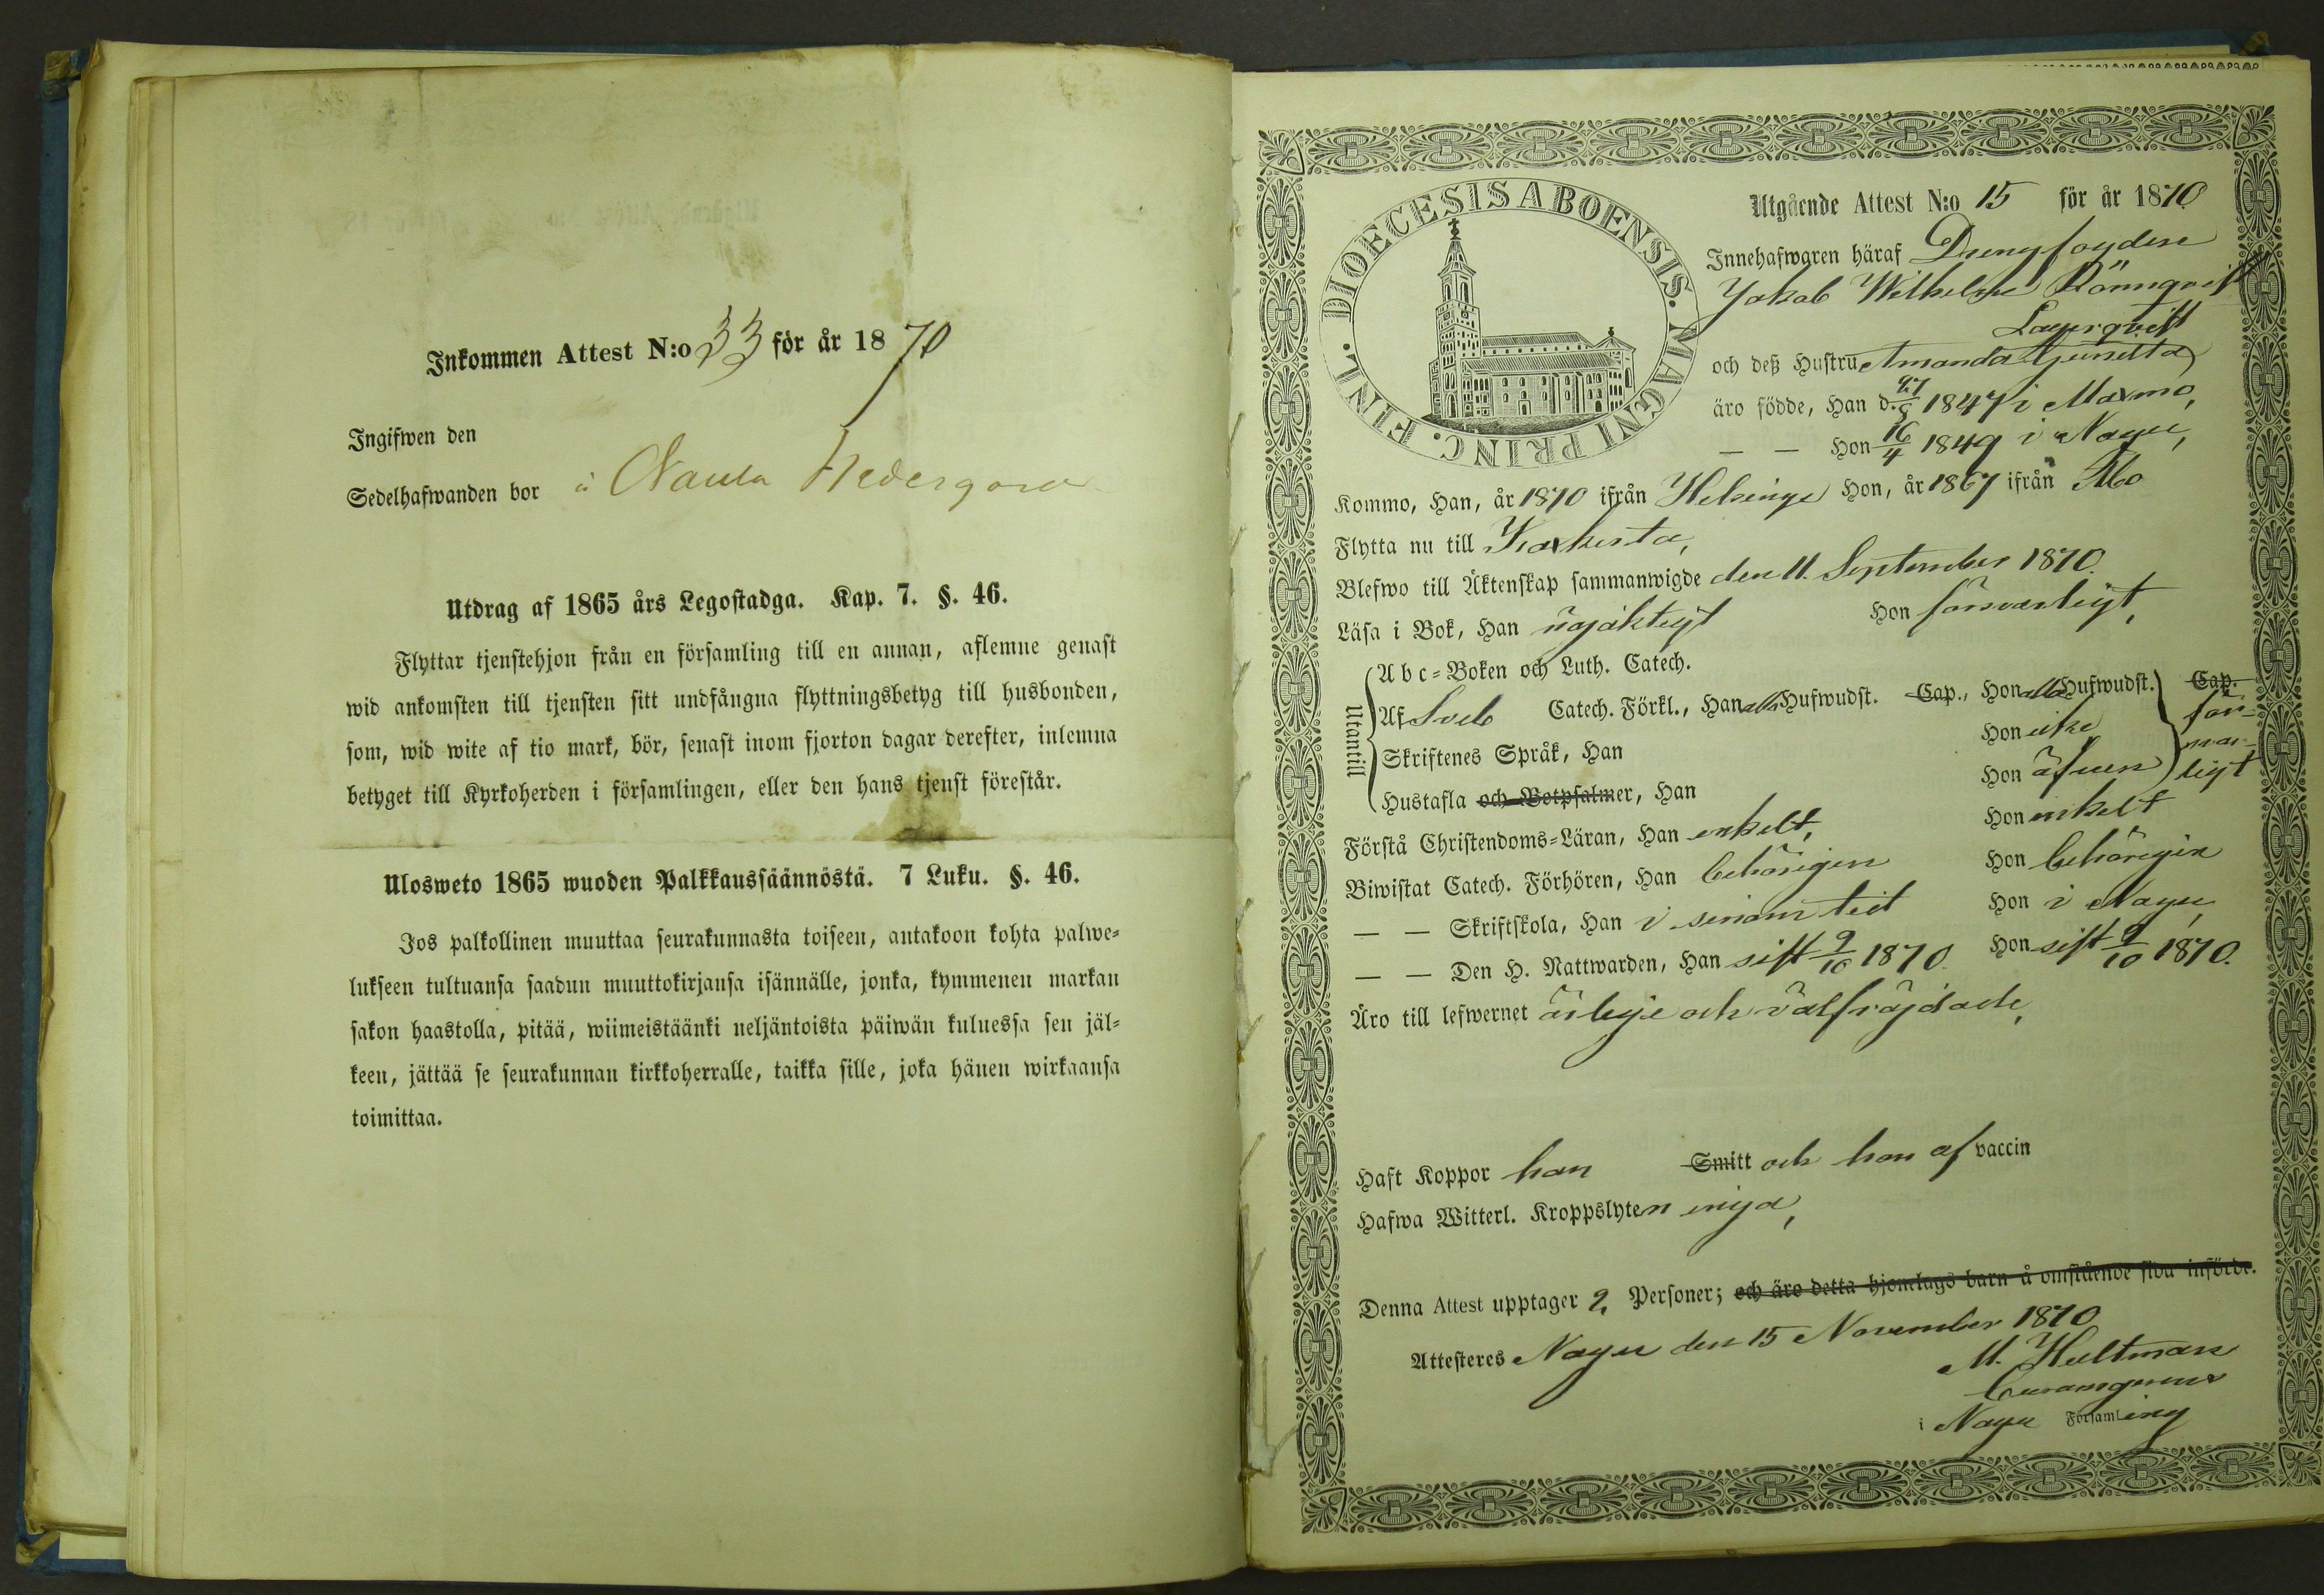 Inkommen Attest N:o 33 för år 1870
Ingifwen den
Sedelhafwanden bor å Naula Nedergård
Utdrag af 1865 års Legostadga. Kap. 7. §. 46.
Flyttar tjenstehjon från en församling till en annan, aflemne genast
wid ankomsten till tjensten sitt undfångna flyttningsbetyg till husbonden,
som, wid wite af tio mark, bör, senast inom fjorton dagar derefter, inlemna
betyget till Kyrkoherden i församlingen, eller den hans tjenst förestår.
Ulosweto 1865 wuoden Palkkaussäännöstä. 7 Luku. §. 46.
Jos palkollinen muuttaa seurakunnasta toiseen, antakoon kohta palwe-
lukseen tultuansa saadun muuttokirjansa isännälle, jonka, kymmenen markan
sakon haastolla, pitää, wiimeistäänki neljäntoista päiwän kuluessa sen jäl-
keen, jättää se seurakunnan kirkkoherralle, taikka sille, joka hänen wirkaansa
toimittaa.
DIOECESIS ABOENSIS. MAGNI PRINC. FINL.
Utgående Attest N:o 15 för år 1870
Innehafwaren häraf Drengfogden
Jakob Wilhelm Rönnqvist
Lagerqvist
och deß Hustru Amanda Gunilla
äro födde, Han d. 27/8 1847 i Maxmo,
— — Hon 16/4 1849 i Nagu,
Kommo, Han, år 1870 ifrån Helsinge Hon, år 1867 ifrån Åbo
Flytta nu till Kaxkerta,
Blefwo till Äktenskap sammanwigde den 11. September 1870.
Läsa i Bok, Han nöjaktigt Hon försvarligt,
Utantill
Abc-Boken och Luth. Catech.
Af Sveb Catech. Förkl., Han alla Hufwudst. Cap., Hon alla Hufwudst. Cap.
Skriftenes Språk, Han Hon icke
Hustafla och Botpsalmer, Han Hon äfven
för-
svar-
ligt
Förstå Christendoms-Läran, Han enkelt, Hon enkelt
Biwistat Catech. Förhören, Han behörigen Hon behörigen
— — Skriftskola, Han i sinom tid Hon i Nagu,
— — Den H. Nattwarden, Han sist 9/10 1870. Hon sist 9/10 1870.
Äro till lefwernet ärlige och välfrejdade,
Haft Koppor han Smitt och hon af vaccin
Hafwa Witterl. Kroppslyten inga,
Denna Attest upptager 2 Personer; och äro detta hjonelags barn å omstående sida införde.
Attesteres Nagu den 15 November 1870
M. Hultman
Curamgerens
i Nagu Församling